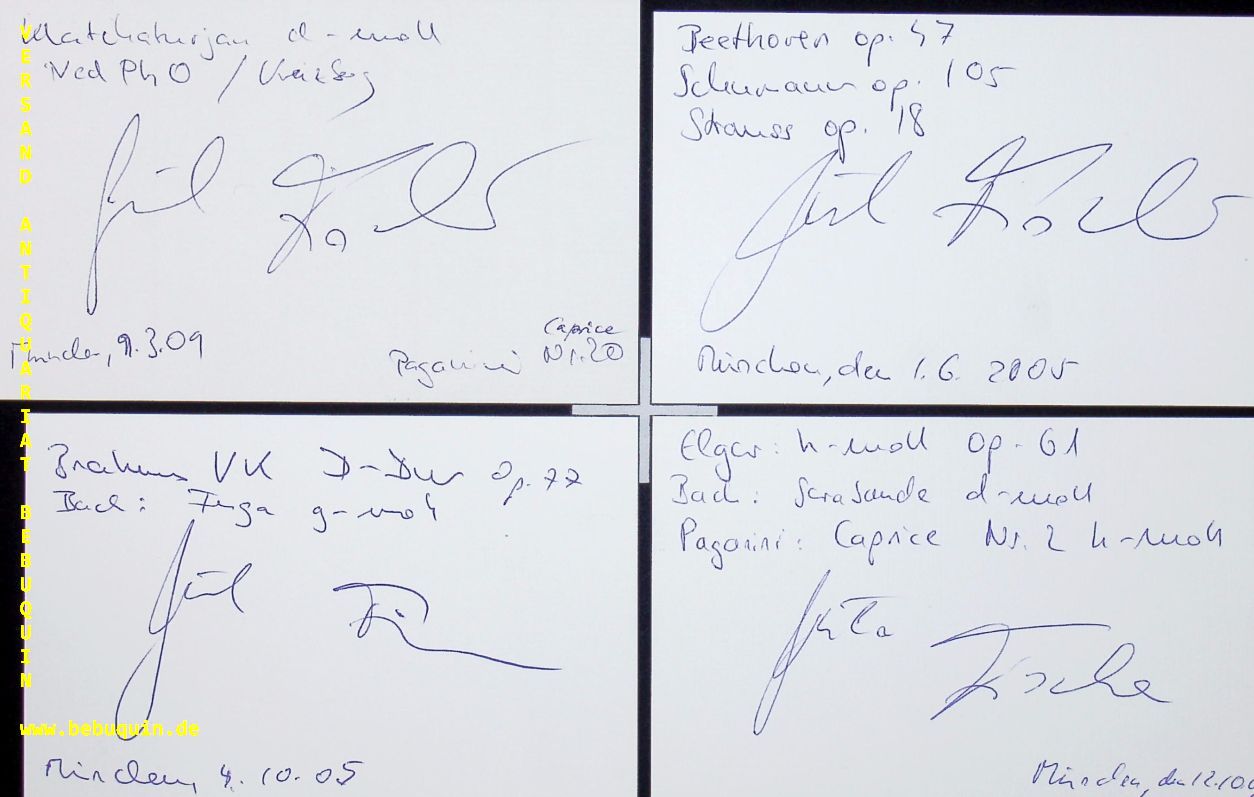 Khatchaturjan d-moll
Ned Ph O / Kreizberg
München, 9.3.09
Paganini Caprice Nr. 20
Beethoven op. 47
Schumann op. 105
Strauss op. 18
Julia Fischer
München, den 1.6. 2005
Brahms VK D-Dur Op. 77
Bach: Fuga g-moll
München, 4.10.05
Elgar: h-moll Op. 61
Bach: Sarabande d-moll
Paganini: Caprice Nr. 2 h-moll
Julia Fischer
München, den 12.10
VERSAND ANTIQUARIAT BEBUQUIN
www.bebuquin.de